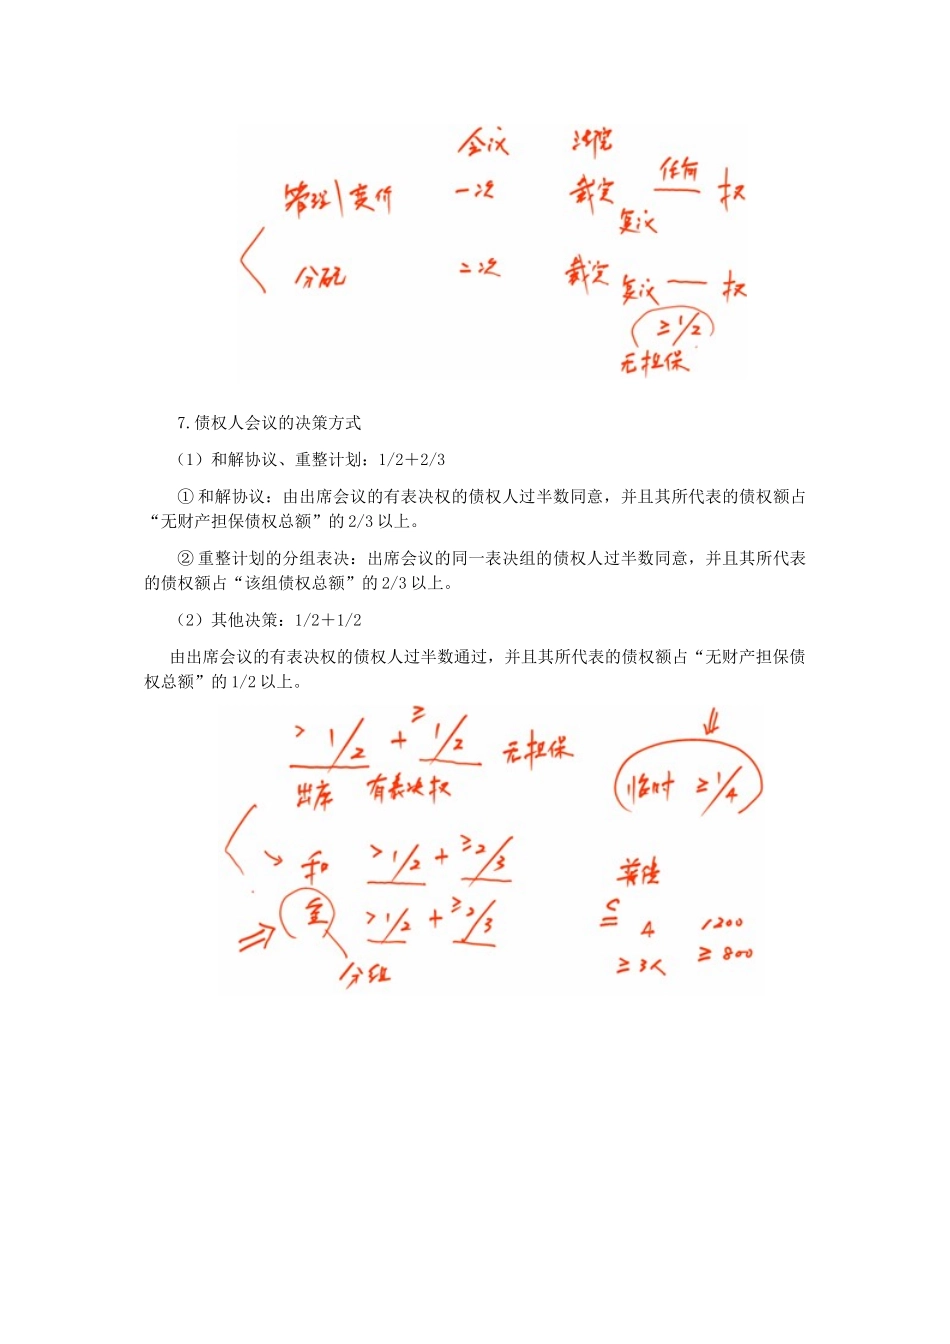 会议 法院
管理\变价 一次 裁定 任何 权
复议
分配 二次 裁定 复议 — 权
≥1/2
无担保
7.债权人会议的决策方式
（1）和解协议、重整计划：1/2＋2/3
①和解协议：由出席会议的有表决权的债权人过半数同意，并且其所代表的债权额占
“无财产担保债权总额”的 2/3 以上。
②重整计划的分组表决：出席会议的同一表决组的债权人过半数同意，并且其所代表
的债权额占“该组债权总额”的 2/3 以上。
（2）其他决策：1/2＋1/2
由出席会议的有表决权的债权人过半数通过，并且其所代表的债权额占“无财产担保债
权总额”的 1/2 以上。
>1/2 + ≥1/2 无担保
出席 有表决权
临时 ≥1/4
和 >1/2 + ≥2/3
>1/2 + ≥2/3
4 1200
≥3人 ≥800
分组